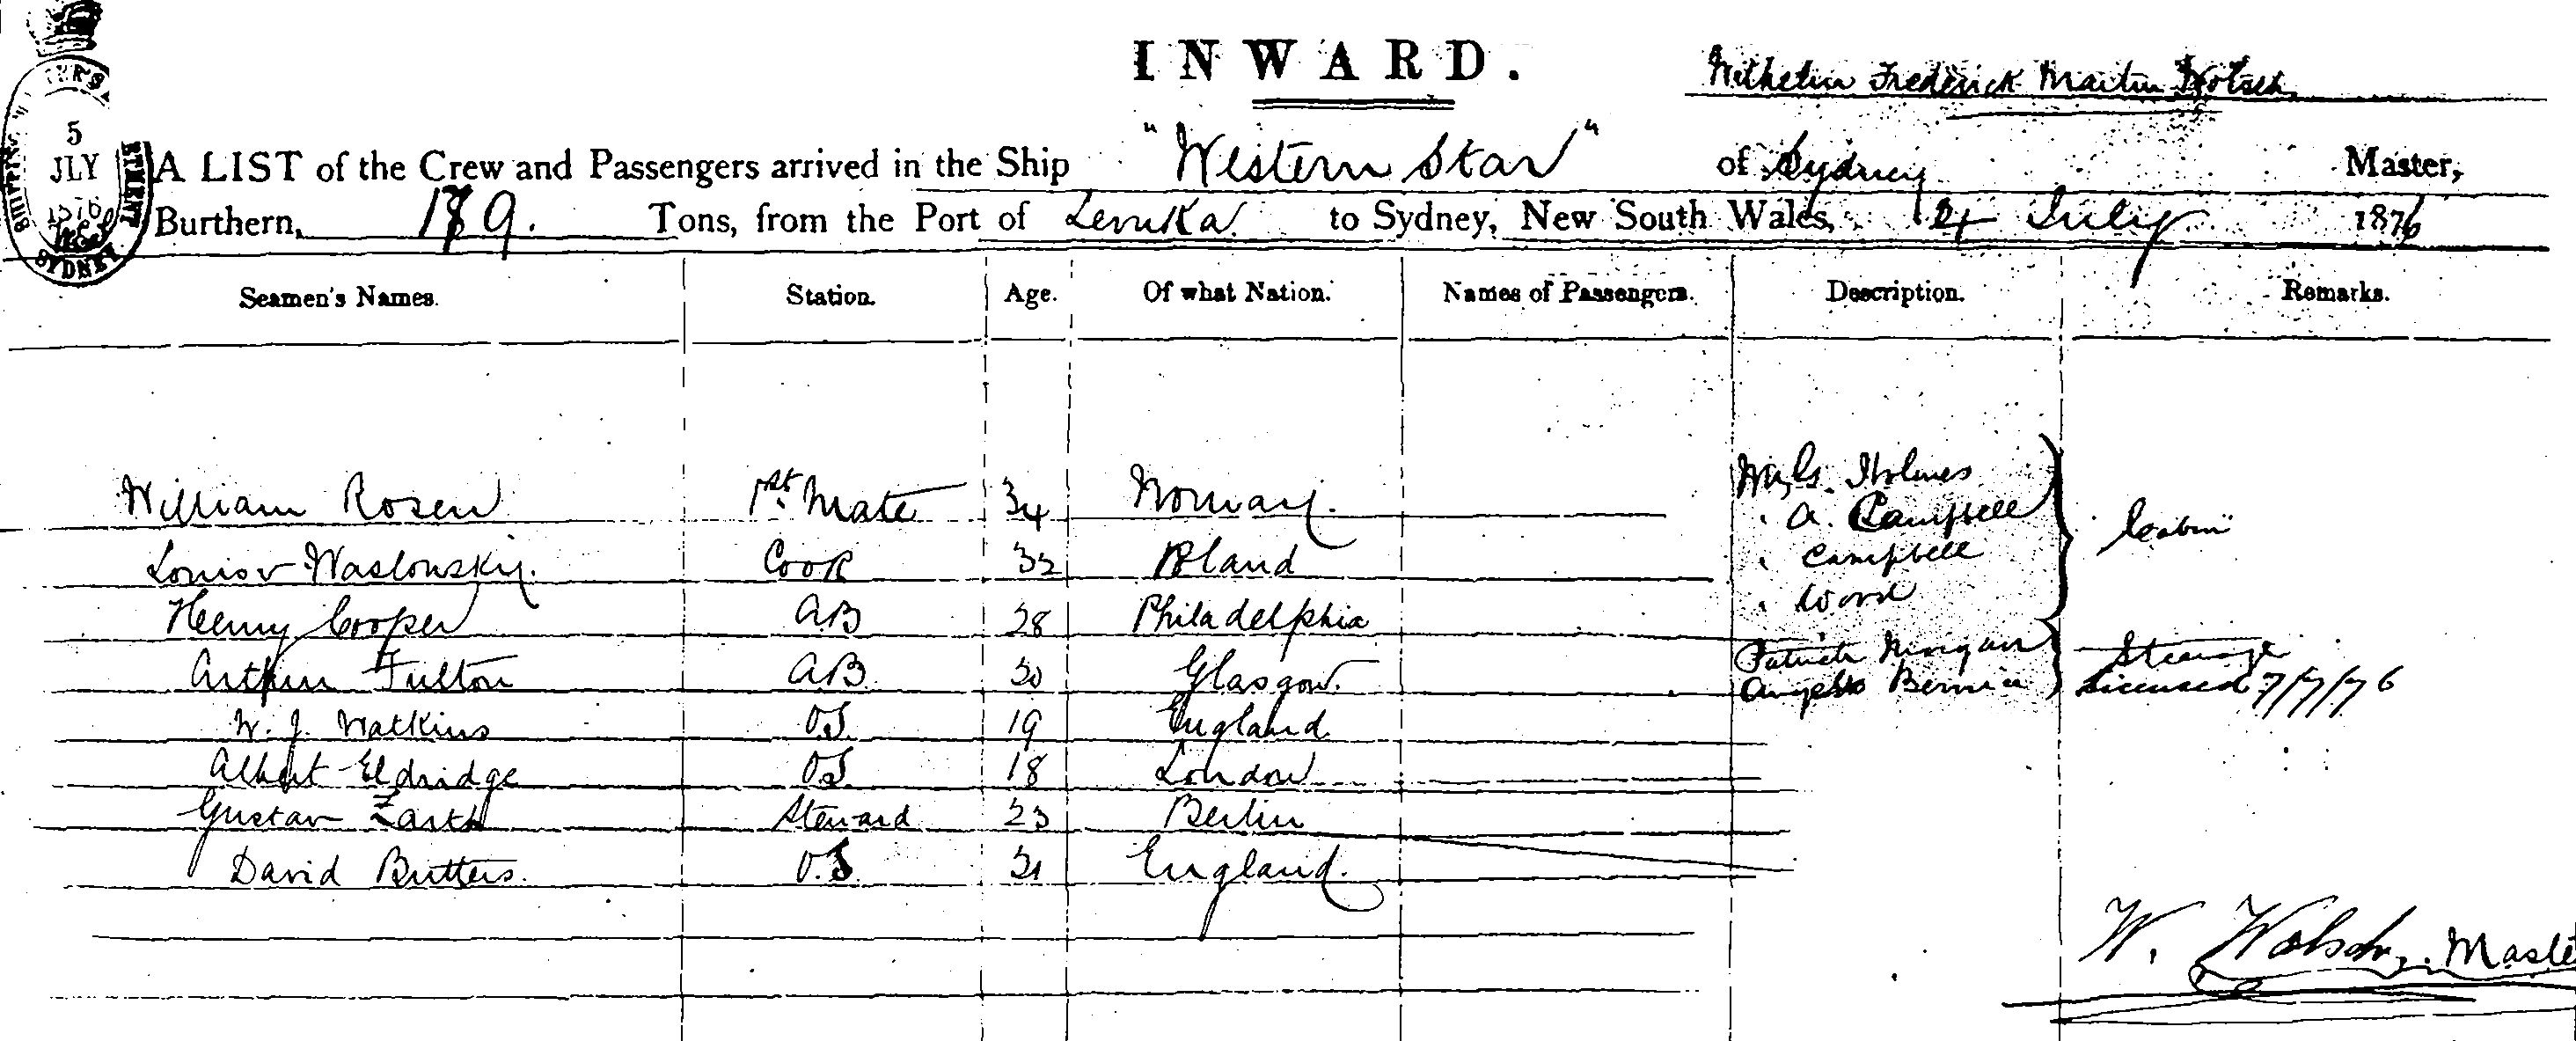 INWARD.
Wilhelm Frederick Martin Wolsch
5
JLY
1876
SYDNEY
A LIST of the Crew and Passengers arrived in the Ship "Western Star" of Sydney Master,
Burthern, 179. Tons, from the Port of Levuka to Sydney, New South Wales, 4 July 1876
Seamen's Names. Station. Age. Of what Nation. Names of Passengers. Description. Remarks.
William Rosen 1st. Mate 34 Norway. Holmes
A. Campbell
Campbell Cabin
Louis Waslousky. Cook 32 Poland Ward
Henry Cooper AB 28 Philadelphia
Arthur Fulton AB. 30 Glasgow. Patrick Morgan Steerage
Angelo Licensed 7/7/76
W. J. Watkins OS. 19 England
Albert Eldridge OS. 18 London
Gustav Zarth Steward 23 Berlin
David Butters. O.S. 21 England.
W. Wolsch, Master